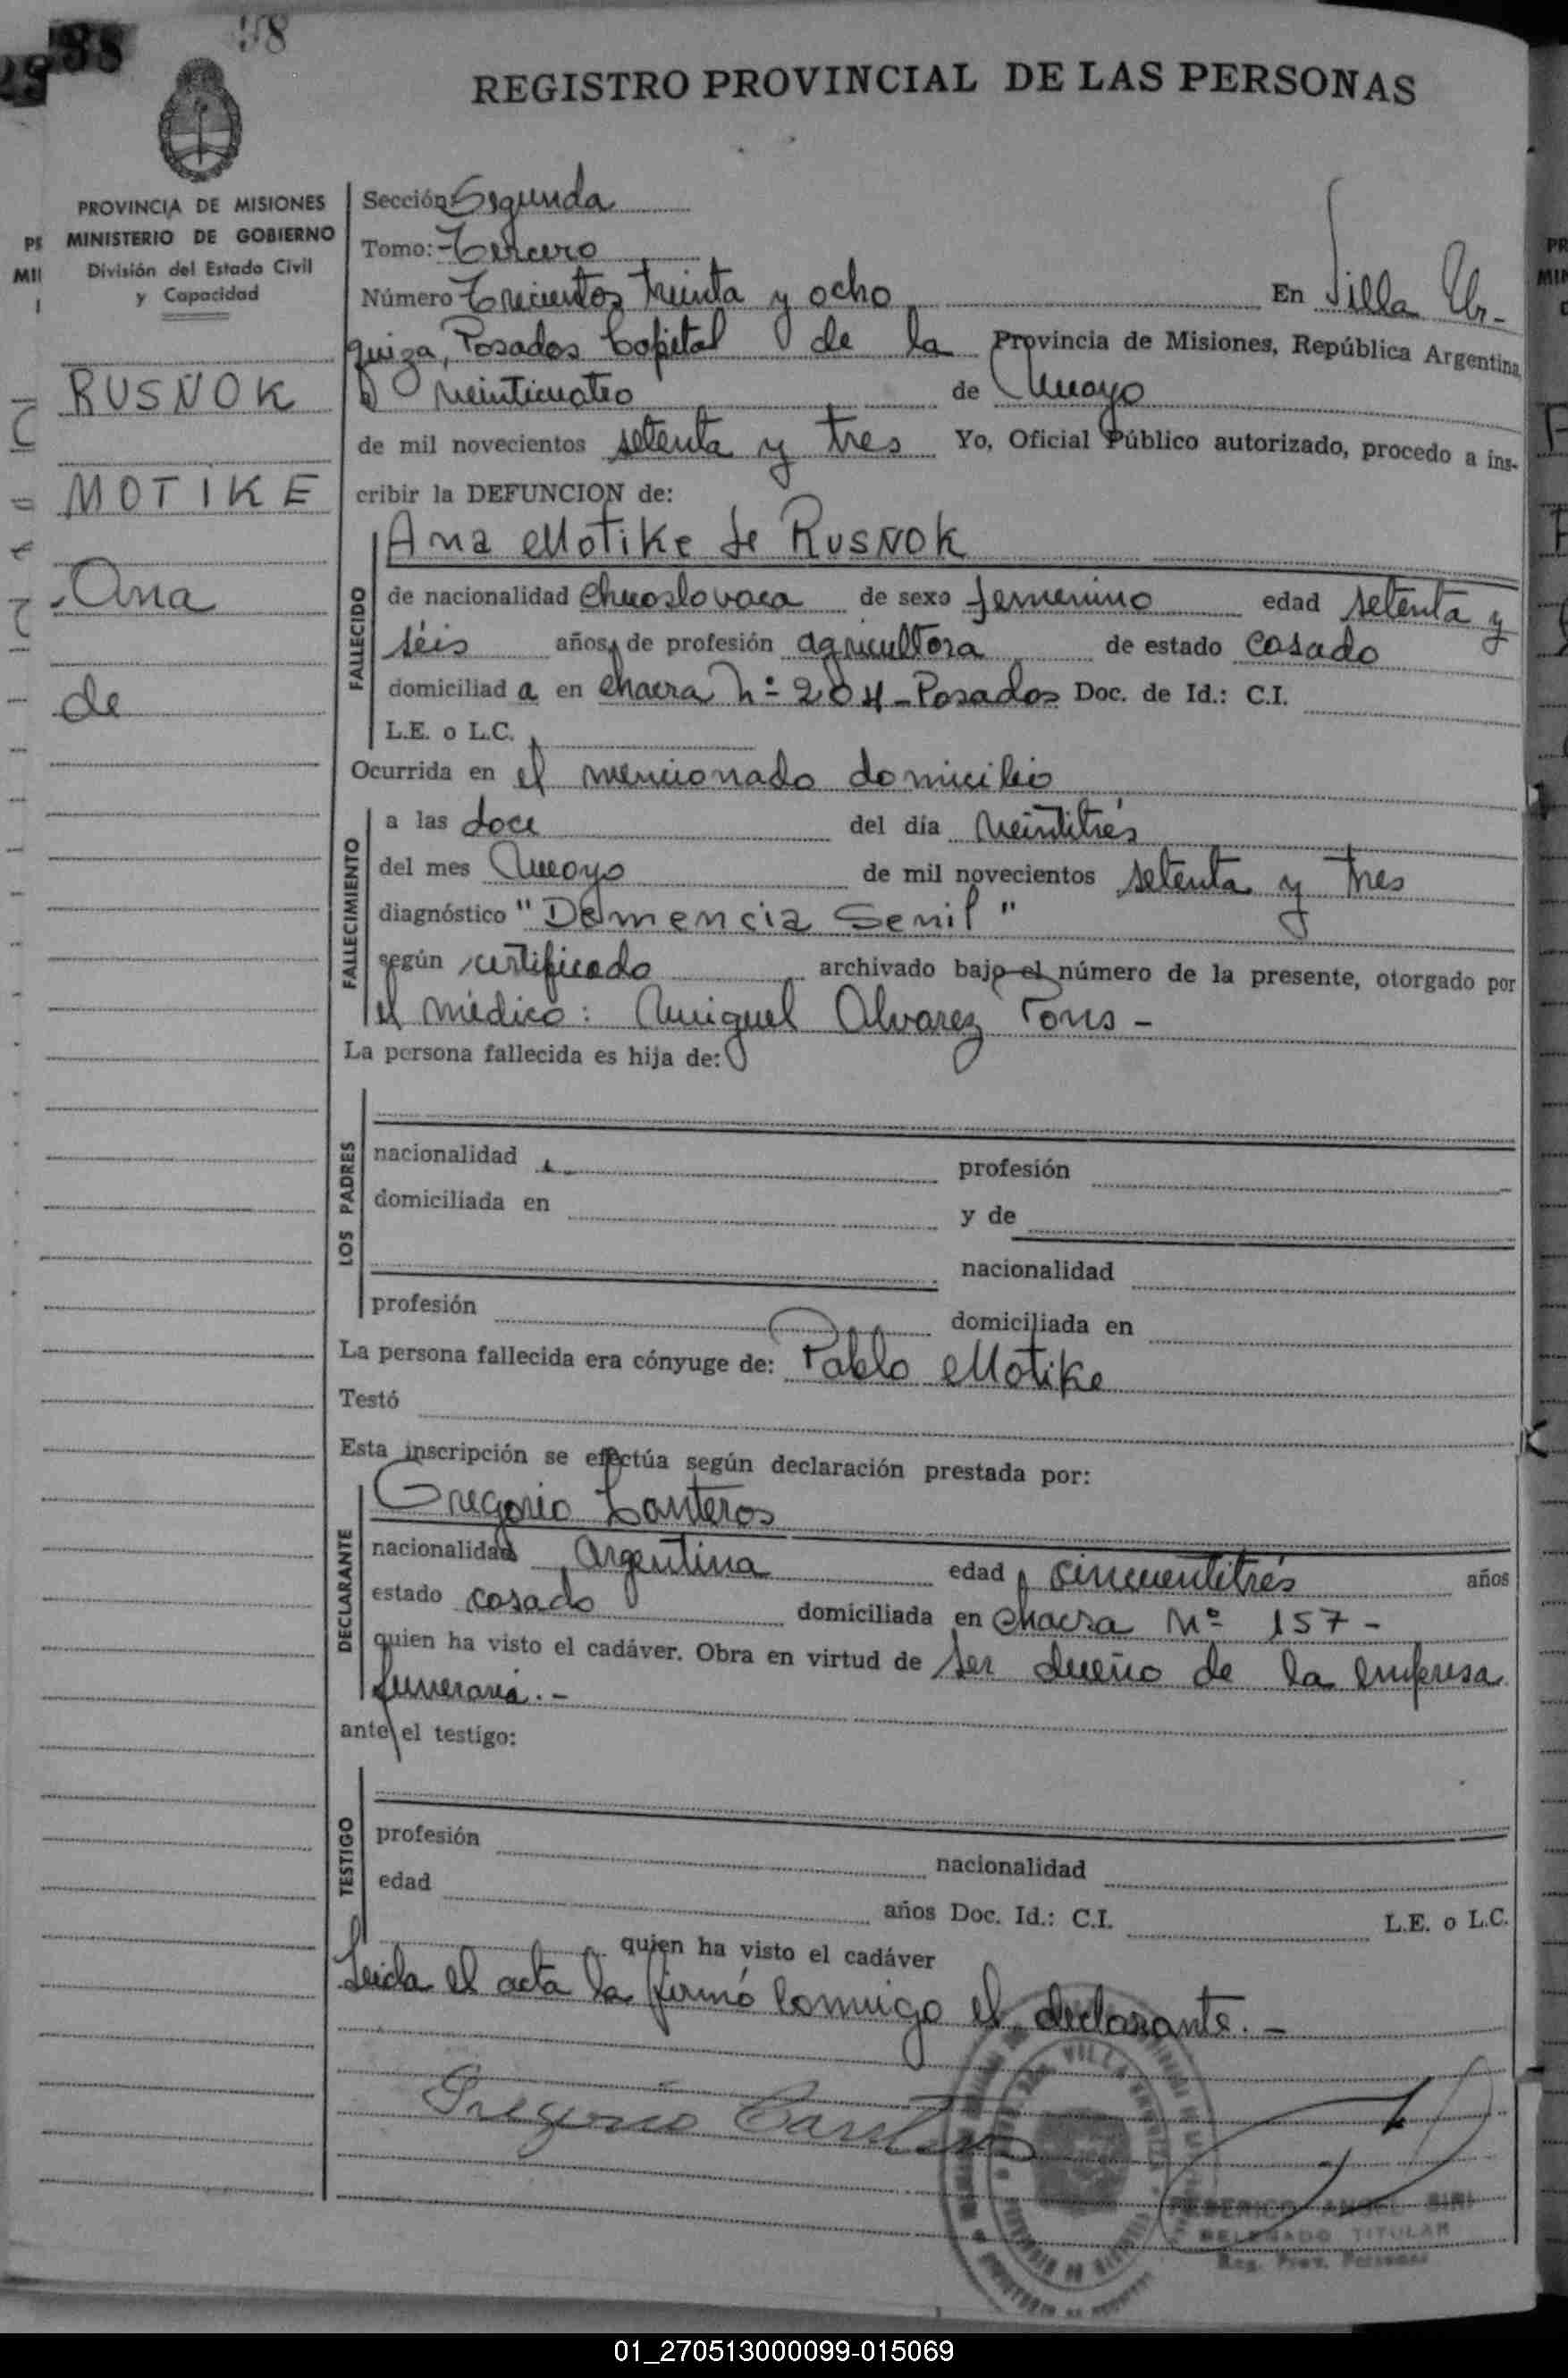 338
98
REGISTRO PROVINCIAL DE LAS PERSONAS
PROVINCIA DE MISIONES
MINISTERIO DE GOBIERNO
División del Estado Civil
y Capacidad
RUSÑOK
MOTIKE
Ana
de
Sección Segunda
Tomo: Tercero
Número Trecientos treinta y ocho En Villa Ur-
quiza, Posadas Capital de la Provincia de Misiones, República Argentina,
a veinticuatro de Mayo
de mil novecientos setenta y tres Yo, Oficial Público autorizado, procedo a ins-
cribir la DEFUNCION de:
Ana Motike de RUSÑOK
FALLECIDO
de nacionalidad checoslovaca de sexo femenino edad setenta y
séis años, de profesión agricultora de estado casado
domiciliad a en chacra Nº 204 - Posadas Doc. de Id.: C.I.
L.E. o L.C.
Ocurrida en el mencionado domicilio
FALLECIMIENTO
a las doce del día veintitrés
del mes Mayo de mil novecientos setenta y tres
diagnóstico "Demencia Senil"
según certificado archivado bajo el número de la presente, otorgado por
el médico: Miguel Alvarez Pons -
La persona fallecida es hija de:
LOS PADRES
nacionalidad profesión
domiciliada en y de
nacionalidad
profesión domiciliada en
La persona fallecida era cónyuge de: Pablo Motike
Testó
Esta inscripción se efectúa según declaración prestada por:
DECLARANTE
Gregorio Lanteros
nacionalidad Argentina edad cincuentitrés años
estado casado domiciliada en chacra Nº 157 -
quien ha visto el cadáver. Obra en virtud de ser dueño de la empresa
funeraria. -
ante el testigo:
TESTIGO
profesión nacionalidad
edad años Doc. Id.: C.I. L.E. o L.C.
quien ha visto el cadáver
Leida el acta la firmó conmigo el declarante. -
Gregorio
VILLA URQUIZA
FEDERICO ANGEL
DELEGADO TITULAR
Reg. Prov. Personas
01_270513000099-015069